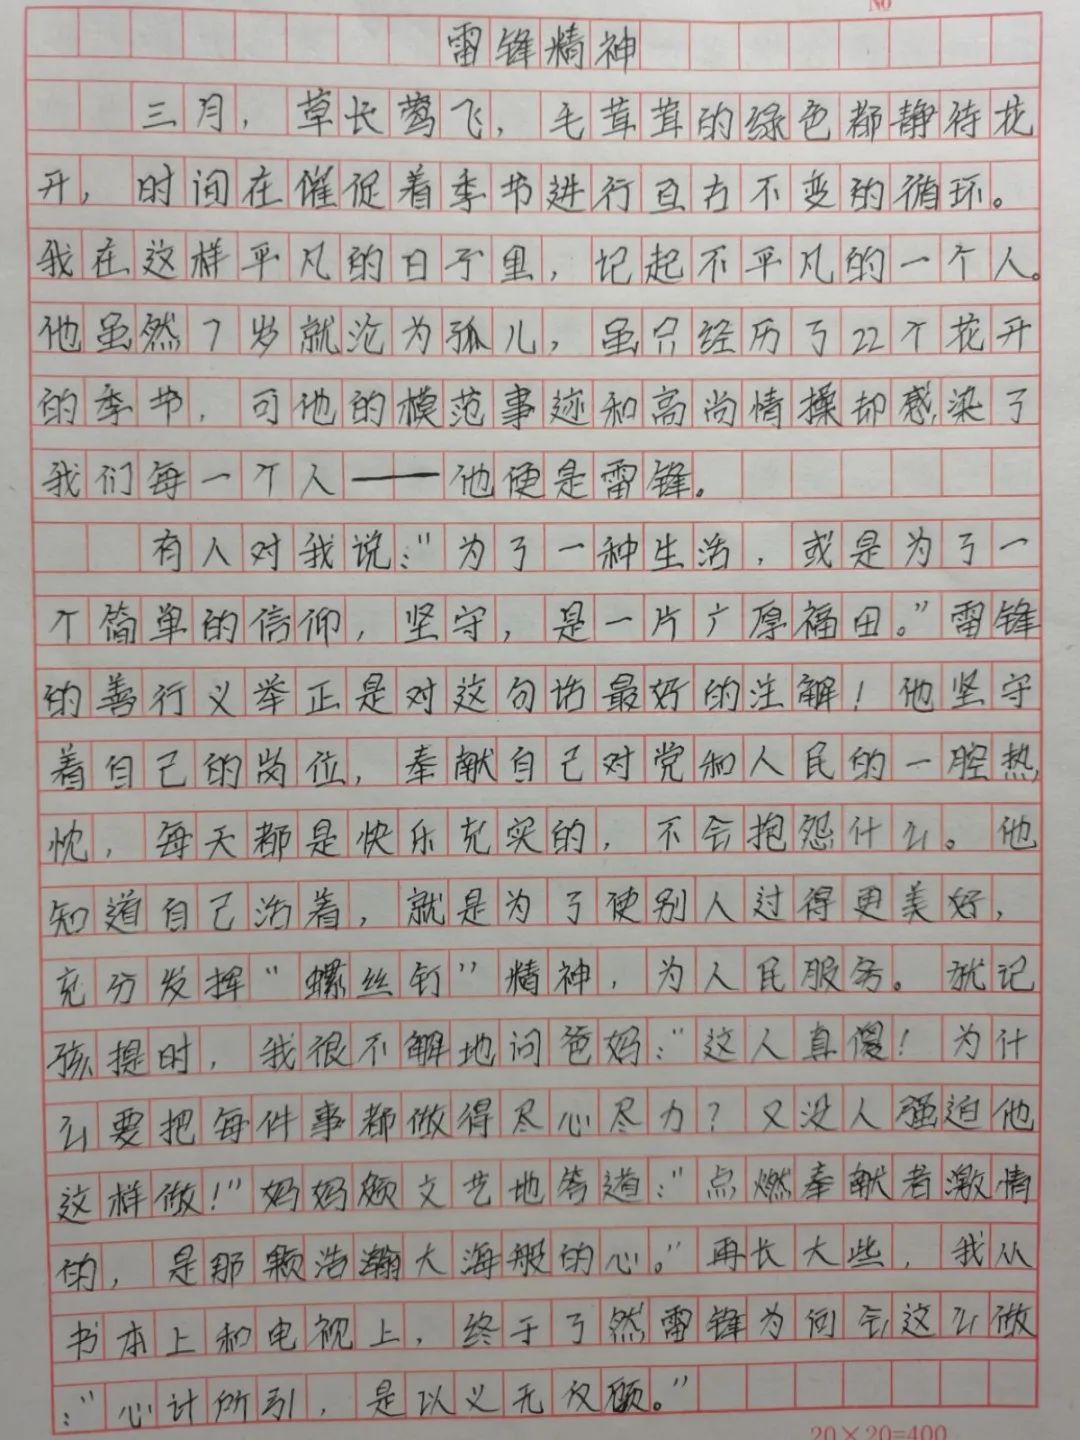 No
雷锋精神
三月，草长莺飞，毛茸茸的绿色都静待花
开，时间在催促着季节进行亘古不变的循环。
我在这样平凡的日子里，记起不平凡的一个人。
他虽然7岁就沦为孤儿，虽只经历了22个花开
的季节，可他的模范事迹和高尚情操却感染了
我们每一个人——他便是雷锋。
有人对我说："为了一种生活，或是为了一
个简单的信仰，坚守，是一片广厚福田。"雷锋
的善行义举正是对这句话最好的注解！他坚守
着自己的岗位，奉献自己对党和人民的一腔热
忱，每天都是快乐充实的，不会抱怨什么。他
知道自己活着，就是为了使别人过得更美好，
充分发挥"螺丝钉"精神，为人民服务。犹记
孩提时，我很不解地问爸妈："这人真傻！为什
么要把每件事都做得尽心尽力？又没人强迫他
这样做！"妈妈颇文艺地答道："点燃奉献者激情
的，是那颗浩瀚大海般的心。"再长大些，我从
书本上和电视上，终于了然雷锋为何会这么做
："心计所引，是以义无反顾。"
20×20=400